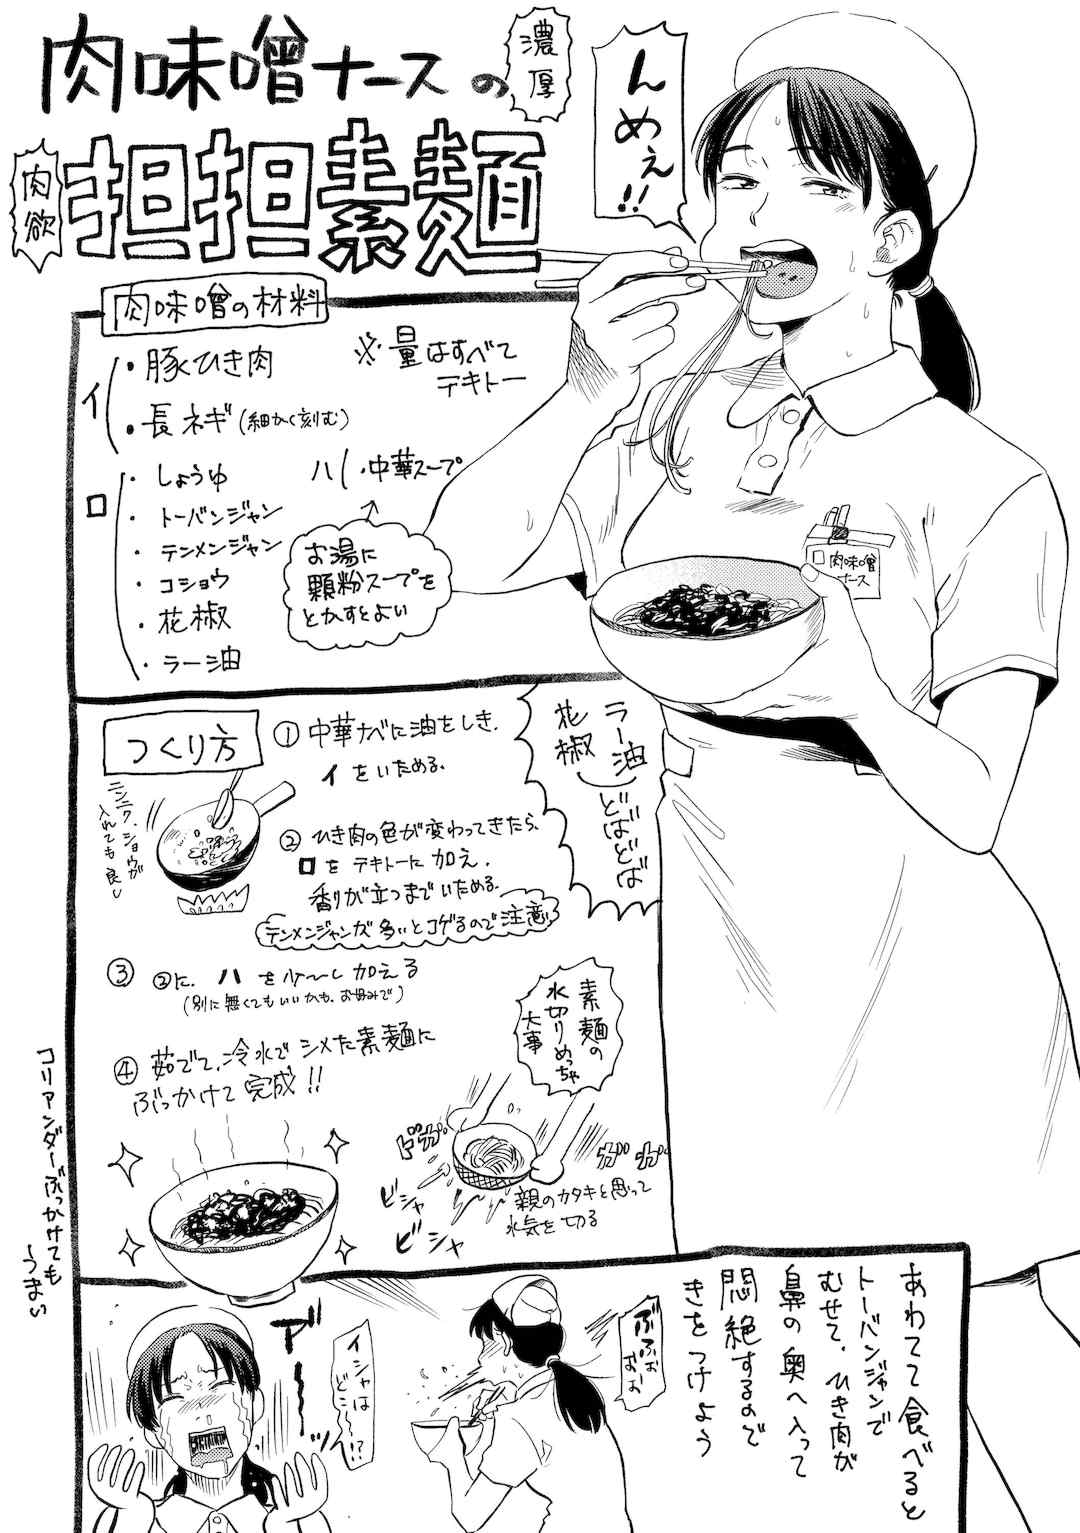 肉味噌ナースの
濃厚
肉欲
担担素麺
んめぇ!!
肉味噌の材料
イ
・豚ひき肉
・長ネギ(細かく刻む)
※量はすべて
テキトー
ロ
・しょうゆ
・トーバンジャン
・テンメンジャン
・コショウ
・花椒
・ラー油
ハ ・中華スープ
お湯に
顆粉スープを
とかすとよい
肉味噌
ナース
つくり方
①中華ナベに油をしき、
イをいためる。
ニンニク、ショウガ
入れても良し
②ひき肉の色が変わってきたら、
ロをテキトーに加え、
香りが立つまでいためる。
テンメンジャンが多いとコゲるので注意
ラー油
花椒
どばどば
③②に、ハを少〜し加える
(別に無くてもいいかも、お好みで)
④茹でて、冷水でシメた素麺に
ぶっかけて完成!!
素麺の
水切りめっちゃ
大事
ドガ
ガガ
ビシャ
ビシャ
親のカタキと思って
水気を切る
コリアンダーぶっかけても
うまい
あわてて食べると
トーバンジャンで
むせて、ひき肉が
鼻の奥へ入って
悶絶するので
きをつけよう
ぶふぉぉぉ
アーーッ
イシャは
どこ〜!?